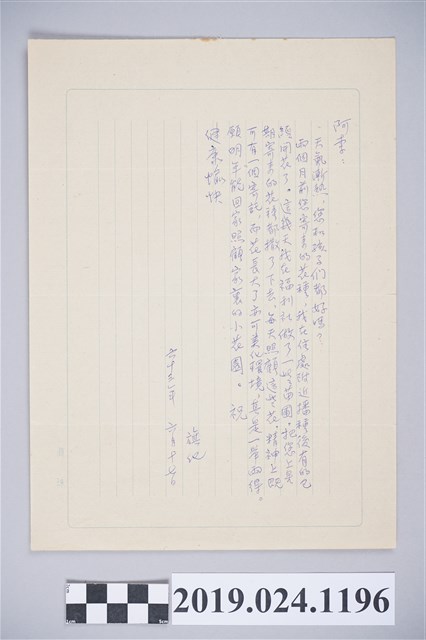 阿季:
天氣漸熱,您和孩子們都好嗎?
兩個月前您寄來的花種,我在住處附近播種後有的已
經開花了。這幾天我在福利社做了一些苗圃,把您上星
期寄來的花種都撒了下去,每天照顧這些花,精神上既
可有一個寄託,而花長大了亦可美化環境,真是一舉兩得。
願明年能回家照顧家裏的小花園。祝
健康愉快
六十五年 六月十七日
1cm
5cm
2019.024.1196